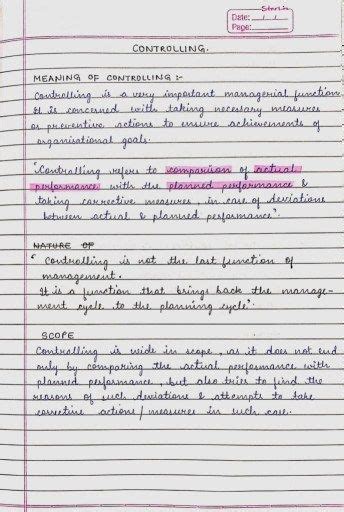 Date: / /
Page:
CONTROLLING.
MEANING OF CONTROLLING :-
Controlling is a very important managerial function.
It is concerned with taking necessary measures
or preventive actions to ensure achievements of
organisational goals.
"Controlling refers to comparison of actual
performance with the planned performance &
taking corrective measures, in case of deviations
between actual & planned performance".
NATURE OF
" Controlling is not the last function of
management.
It is a function that brings back the manage-
ment cycle to the planning cycle".
SCOPE
Controlling is wide in scope, as it does not end
only by comparing the actual performance with
planned performance, but also tries to find the
reasons of such deviations & attempts to take
corrective actions / measures in such case.